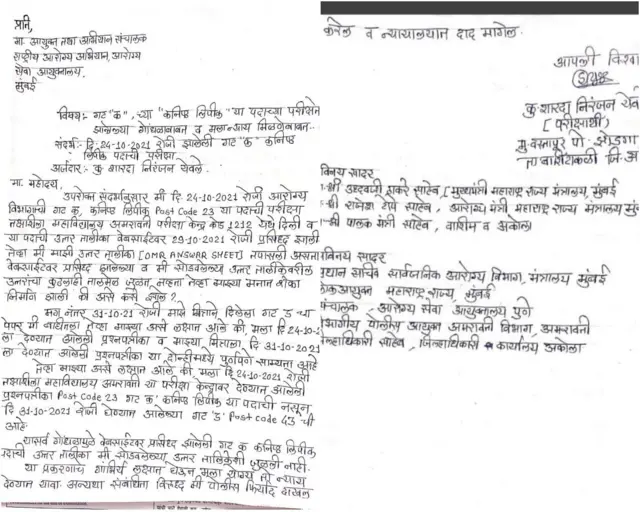 प्रति,
मा. आयुक्त तथा अभियान संचालक
राष्ट्रीय आरोग्य अभियान, आरोग्य
सेवा आयुक्तालय,
मुंबई
विषय:- गट "क", च्या "कनिष्ठ लिपीक" या पदाच्या परीक्षेत
झालेल्या गोंधळाबाबत व मला न्याय मिळणेबाबत...
संदर्भ:- दि. 24-10-2021 रोजी झालेली गट "क" कनिष्ठ
लिपीक पदाची परीक्षा.
अर्जदार:- कु शारदा निरंजन येवले.
मा. महोदय,
उपरोक्त संदर्भानुसार मी दि. 24-10-2021 रोजी आरोग्य
विभागाची गट क, कनिष्ठ लिपीक Post Code 23 या पदाची परीक्षा
महाविद्यालय अमरावती परीक्षा केंद्र कोड 1212 येथे दिली व
या पदाची उत्तर तालीका वेबसाईटवर 29-10-2021 रोजी प्रसिद्ध झाली
तेव्हा मी माझी उत्तर तालीका [OMR ANSWAR SHEET] तपासली असता
वेबसाईटवर प्रसिद्ध झालेल्या व मी सोडवलेल्या उत्तर तालीकेवरील
उत्तरांचा कुठलाही ताळमेळ जुळत नव्हता तेव्हा माझ्या मनात शंका
निर्माण झाली की असे कसे
मग नंतर 31-10-2021 रोजी माझे मित्राने दिलेला गट 'ड' चा
पेपर मी बघितला तेव्हा माझ्या असे लक्षात आले की, मला दि. 24-10-2021
ला देण्यात आलेली प्रश्नपत्रीका व माझ्या मित्राला, दि. 31-10-2021
ला देण्यात आलेली प्रश्नपत्रीका या दोन्हीमध्ये पुर्णपणे साम्यता आहे
तेव्हा माझ्या असे लक्षात आले की, मला दि. 24-10-2021 रोजी
महाविद्यालय अमरावती या परीक्षा केंद्रावर देण्यात आलेली
प्रश्नपत्रीका Post Code 23 गट 'क' कनिष्ठ लिपीक या पदाची नसून
दि 31-10-2021 रोजी घेण्यात आलेल्या गट 'ड' Post code 43 ची
आहे.
यासर्व गोंधळामुळे वेबसाईटवर प्रसिद्ध झालेली गट क कनिष्ठ लिपीक
पदाची उत्तर तालीका मी सोडवलेल्या उत्तर तालिकेशी जुळली नाही.
या प्रकरणाचे गांभिर्य लक्षात घेऊन मला योग्य तो न्याय
देण्यात यावा अन्यथा संबंधिता विरूद्ध मी पोलीस फिर्याद दाखल
करेल व न्यायालयात दाद मागेल.
आपली विश्वा
कु शारदा निरंजन येव
[परीक्षार्थी]
मु. वस्तापूर पो. झोडगा
ता बार्शिटाकळी जि. अ
विनय सादर
श्री उध्दवजी ठाकरे साहेब, [मुख्यमंत्री महाराष्ट्र राज्य मंत्रालय, मुंबई
श्री राजेश टोपे साहेब, आरोग्य मंत्री महाराष्ट्र राज्य मंत्रालय मुंब
श्री पालक मंत्री साहेब, वाशीम व अकोला
विनय सादर
प्रधान सचिव सार्वजनिक आरोग्य विभाग, मंत्रालय मुंबई
आयुक्त महाराष्ट्र राज्य, मुंबई
संचालक - आरोग्य सेवा आयुक्तालय पुणे
पोलीस आयुक्त अमरावती विभाग, अमरावती
जिल्हाधिकारी साहेब, जिल्हाधिकारी कार्यालय अकोला